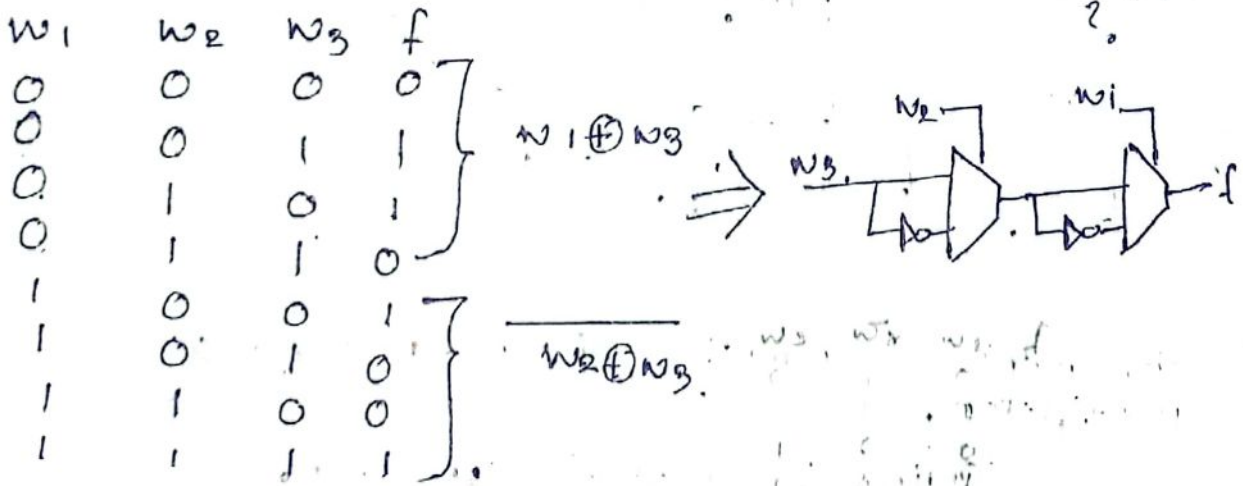 ?
w1 w2 w3 f
0 0 0 0
0 0 1 1
0 1 0 1
0 1 1 0
1 0 0 1
1 0 1 0
1 1 0 0
1 1 1 1
w1 ⊕ w3
w2 ⊕ w3
⇒
w2
w1
w3
f